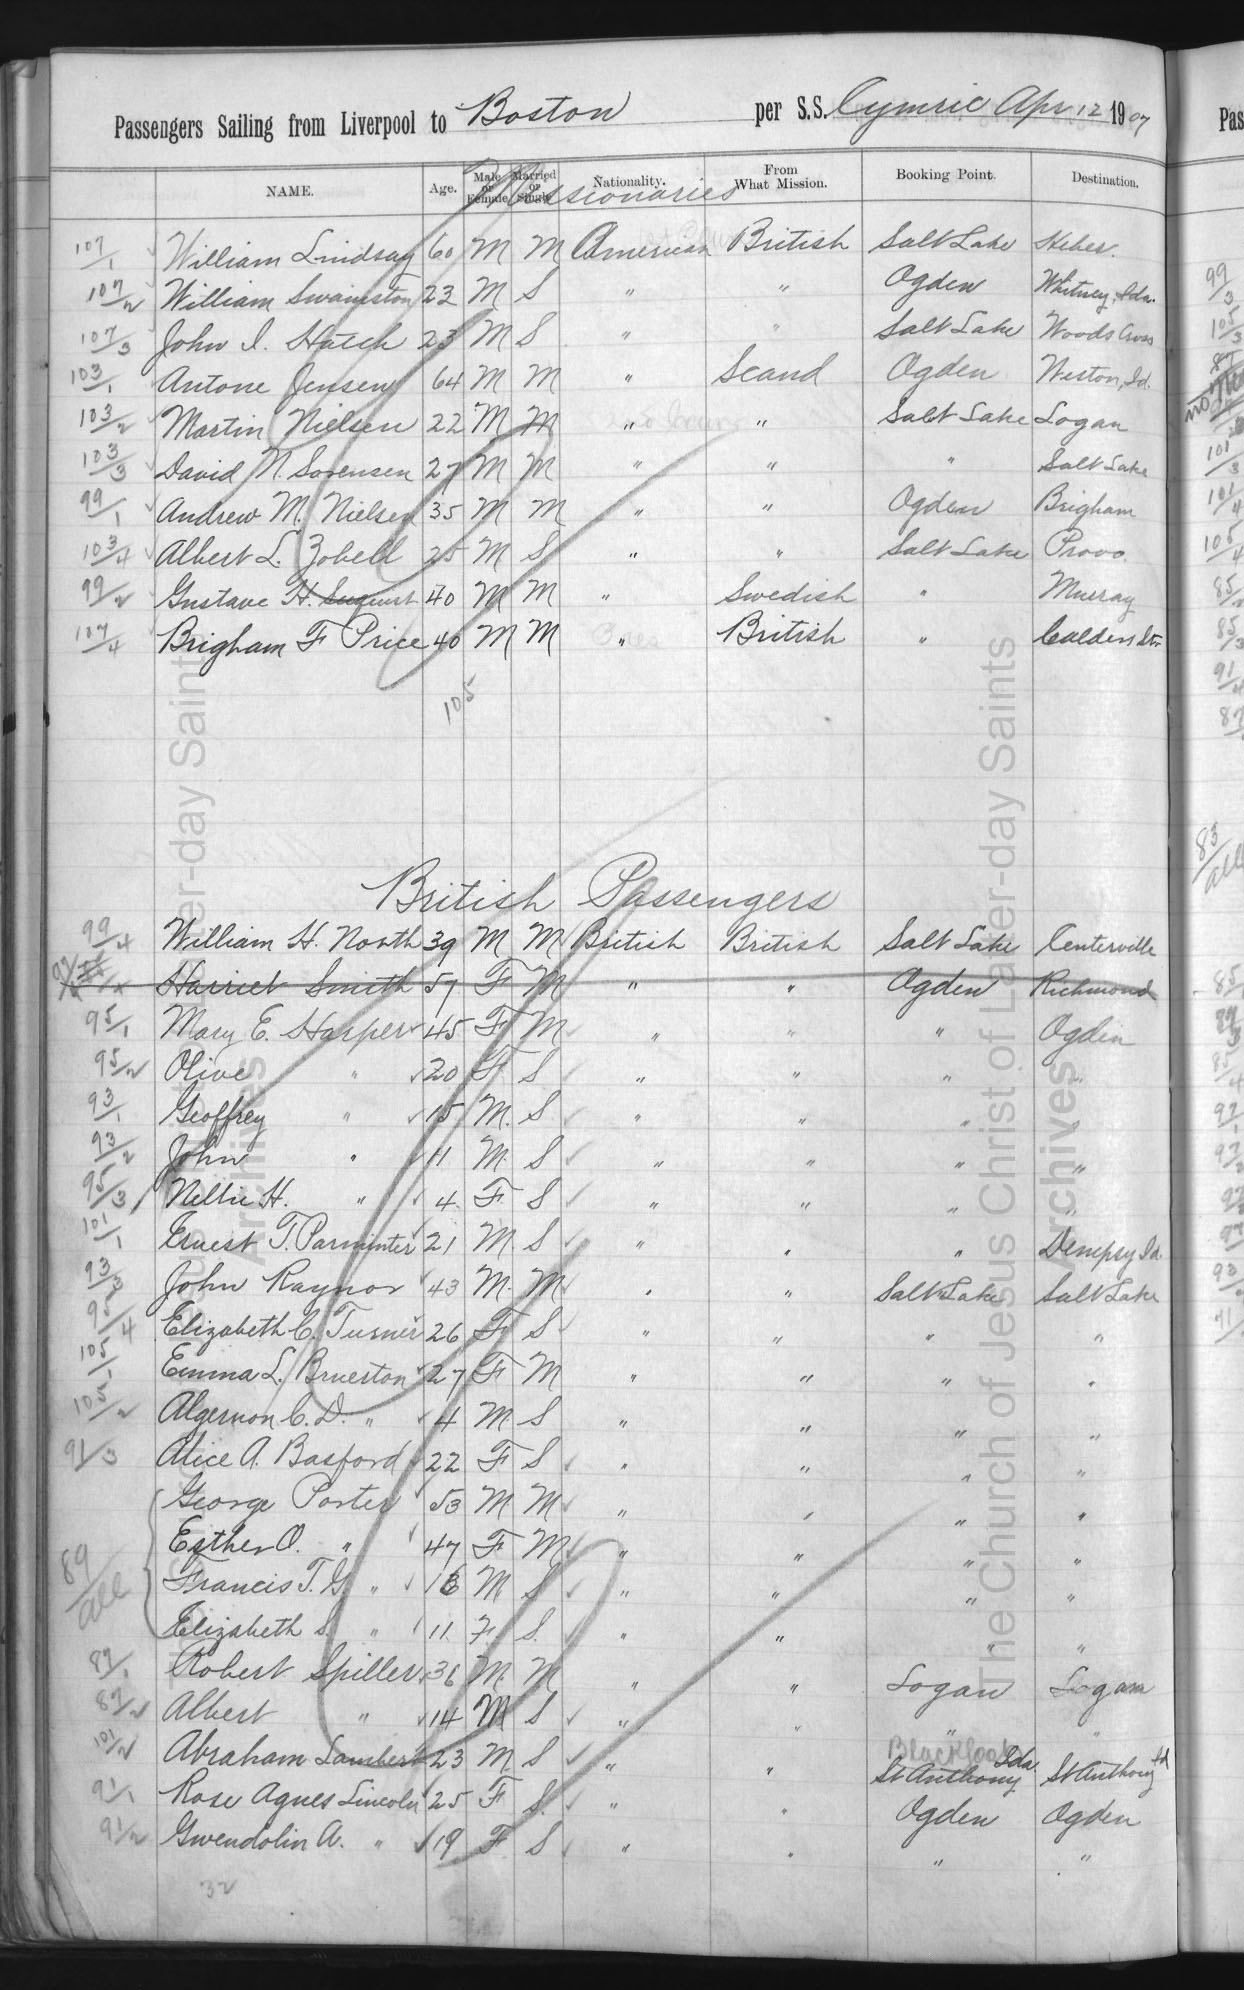 Passengers Sailing from Liverpool to Boston per S.S. Cymric Apr 12 1907
NAME. Age. Male or Female Married or Single Nationality. From What Mission. Booking Point. Destination.
Missionaries
107/1 William Lindsay 60 M M American British Salt Lake Heber.
107/2 William Swainston 23 M S " " Ogden Whitney, Ida.
107/3 John I. Hatch 23 M S " " Salt Lake Woods Cross
103/1 Antone Jensen 64 M M " Scand Ogden Weston, Id.
103/2 Martin Nielsen 22 M M " " Salt Lake Logan
103/3 David N. Sorensen 27 M M " " " Salt Lake
99/1 Andrew M. Nielsen 35 M M " " Ogden Brigham
103/4 Albert L. Zobell 25 M S " " Salt Lake Provo.
99/2 Gustave H. 40 M M " Swedish " Murray
107/4 Brigham F Price 40 M M " British "
105
British Passengers
99/4 William H. North 39 M M British British Salt Lake Centerville
Harriet Smith 57 F M " " Ogden Richmond
95/1 Mary E. Harper 45 F M " " " Ogden
95/2 Olive " 20 F S " " " "
93/1 Geoffrey " 15 M. S " " " "
93/2 John " 11 M. S " " " "
95/3 Nellie H. " 4 F S " " " "
101/1 Ernest T. Parminter 21 M S " " " Dempsy Ia.
93/3 John Raynor 43 M. M " " Salt Lake Salt Lake
95/4 Elizabeth C. Turner 26 F S " " " "
105/1 Emma L. Brueston 27 F M " " " "
105/2 Algernon C. D. " 4 M S " " " "
91/3 Alice A. Basford 22 F S " " " "
George Porter 53 M M " " " "
Esther O. " 47 F M " " " "
89/all Francis T. G. " 16 M S " " " "
Elizabeth S. " 11 F. S. " " " "
87/1 Robert Spiller 36 M. M " " Logan Logan
87/2 Albert " 14 M S " " " "
101/2 Abraham Lambert 23 M S " " Blackfoot St Anthony Ida St Anthony Id
91/1 Rose Agnes Lincoln 25 F S. " " Ogden Ogden
91/2 Gwendolin A. " 19 F S " " " "
32
The Church of Jesus Christ of Latter-day Saints
Archives